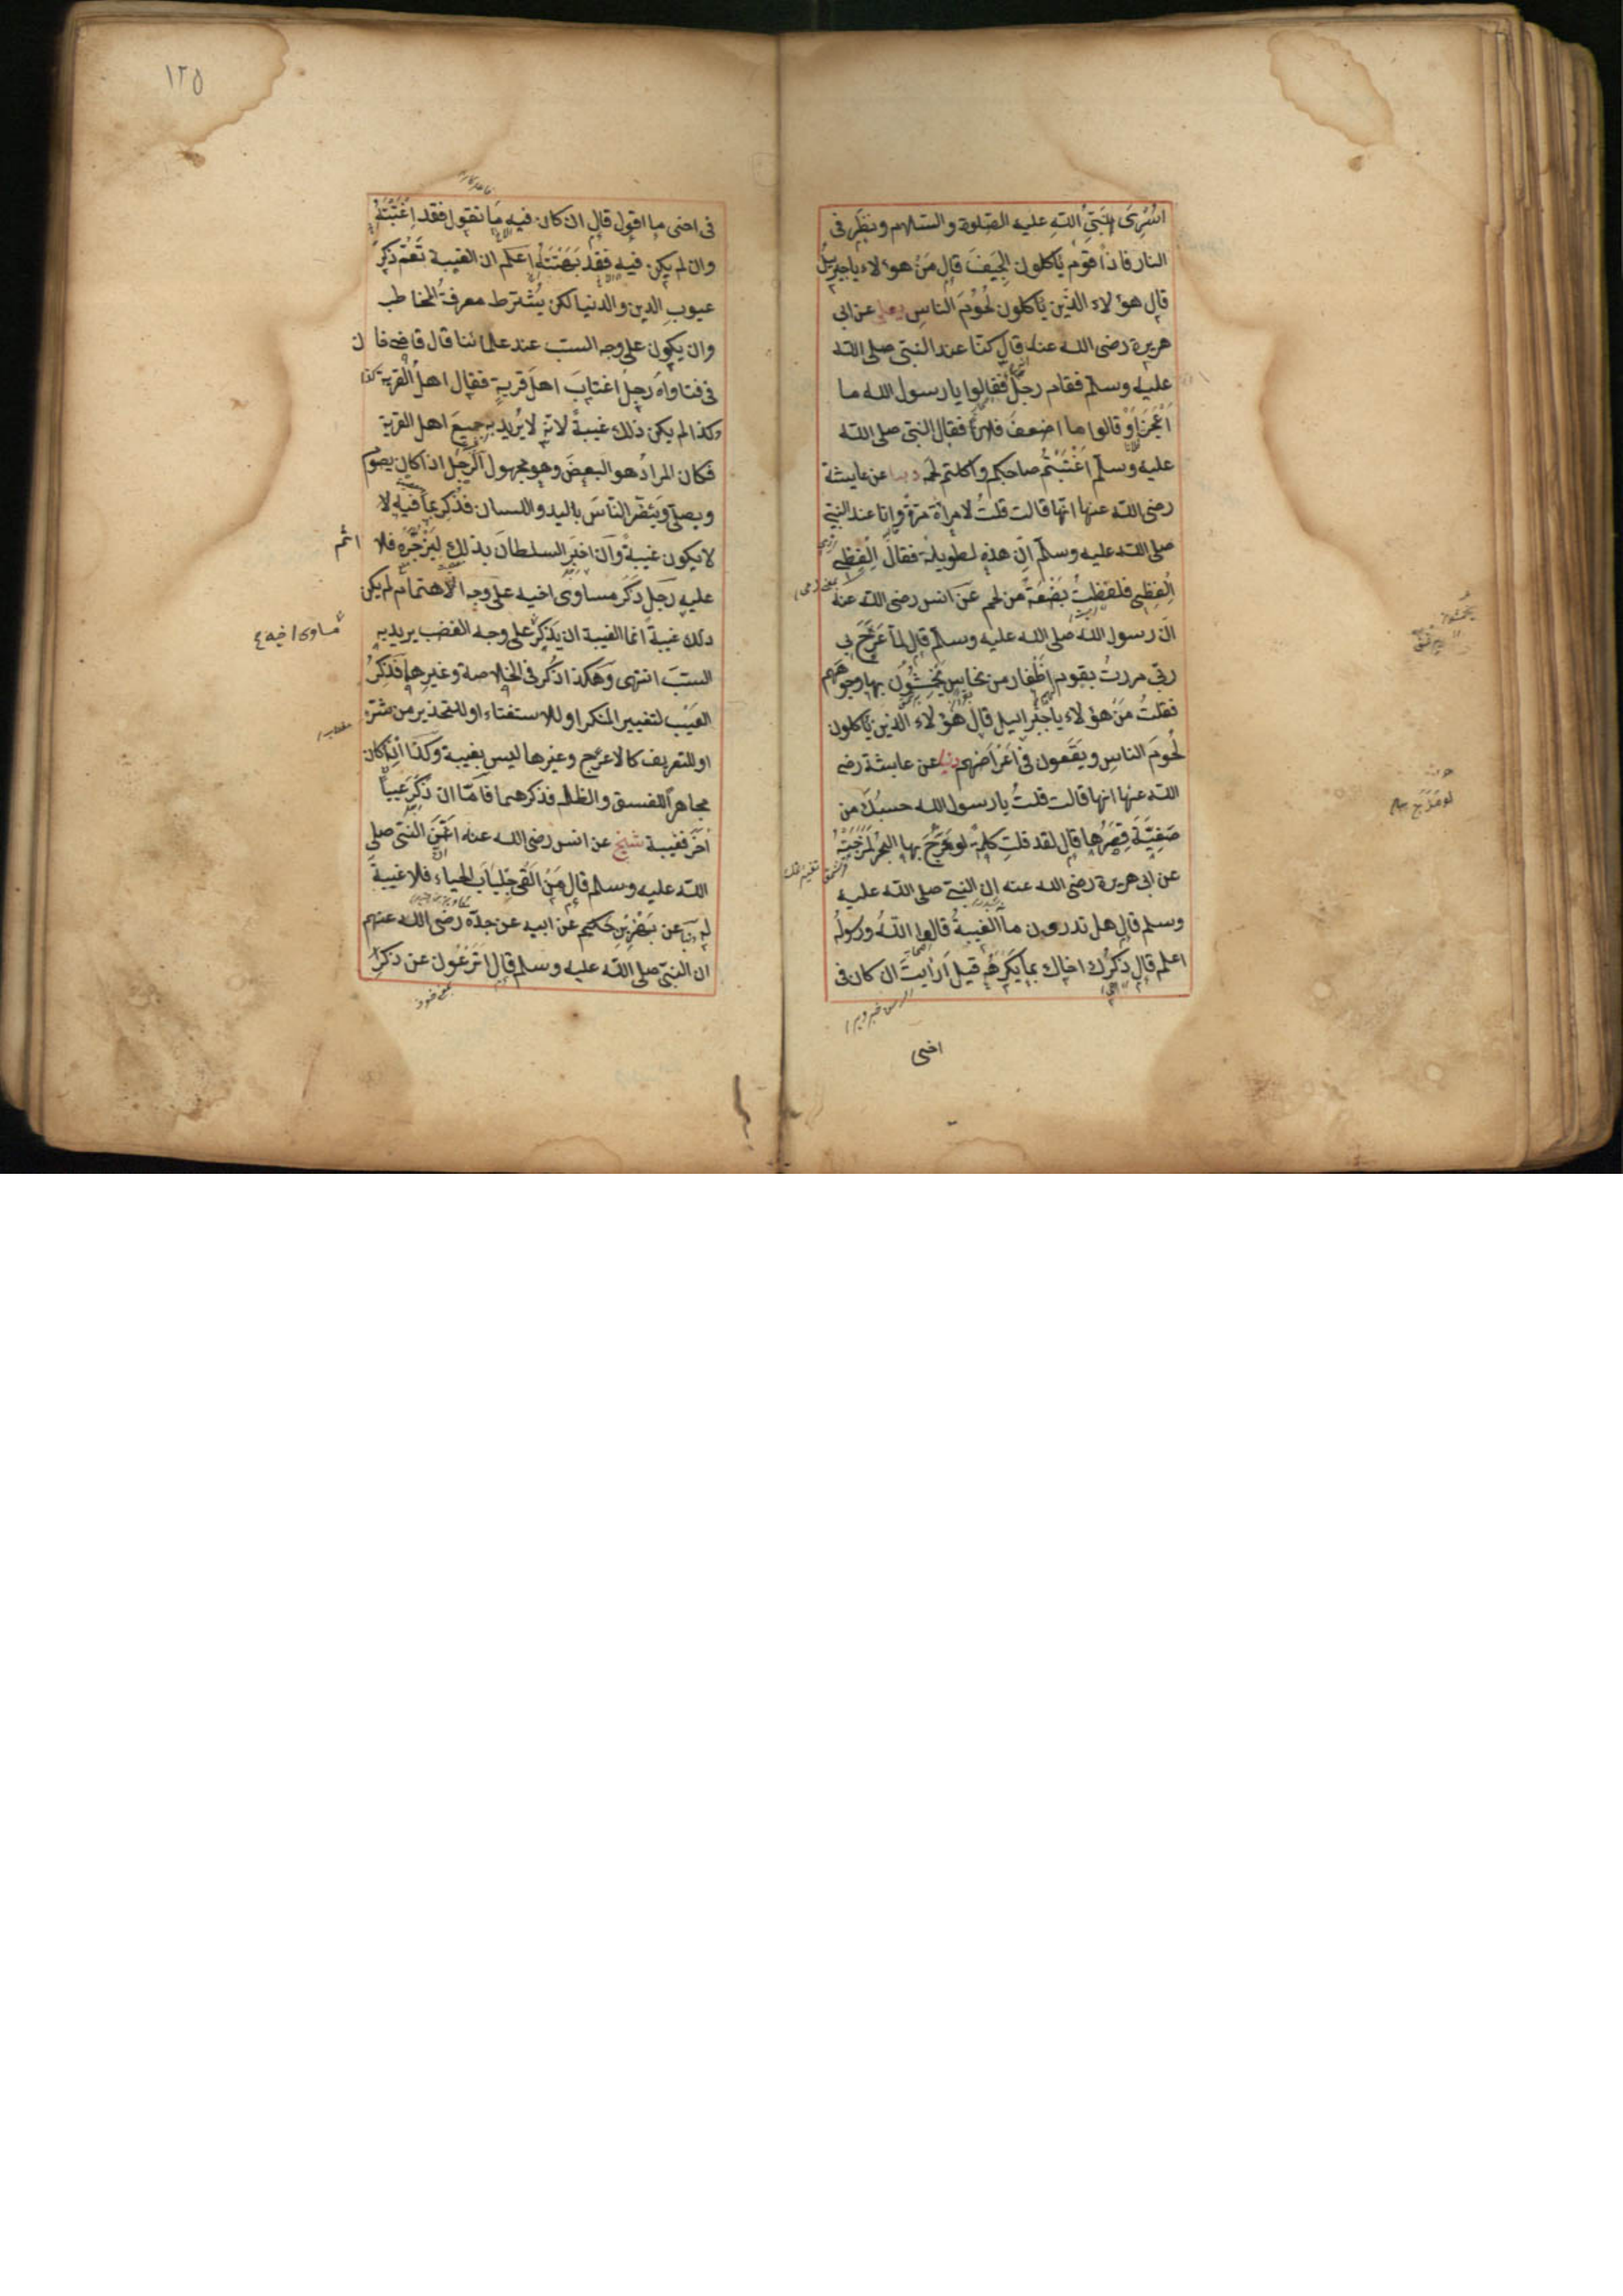 اُسْرِىَ بِنَبِىِّ اللّٰهِ عليه الصلوة والسلام ونظر فى
النار فاذا قوم يأكلون الجِيَفَ قال مَنْ هؤلاء يا جبريل
قال هؤلاء الذين يأكلون لُحُومَ الناسِ يعلى عن ابى
هريرة رضى الله عنه قال كنّا عند النبى صلى الله
عليه وسلم فقام رجلٌ فقالوا يا رسول الله ما
اَعْجَزَ اَوْ قالوا ما اضعفَ فلانًا فقال النبى صلى الله
عليه وسلم اغْتَبْتُمْ صاحبكم واكلتم لحمه دنيا عن عايشة
رضى الله عنها انها قالت قلتُ لامرأة مرّةً وانا عند النبى
صلى الله عليه وسلم اِنّ هذه لطويلة فقال اِلْفِظِى
اِلْفِظِى فلفظتُ بَضْعَةً من لحم عن انس رضى الله عنه
انّ رسول الله صلى الله عليه وسلم قال لمّا عَرَجَ بى
ربّى مررتُ بقوم اَظْفار من نحاسٍ يَخْمِشُونَ بها وجوههم
فقلتُ مَنْ هؤلاء يا جبرائيل قال هؤلاء الذين يأكلون
لُحُومَ الناسِ ويَقَعون فى اَعْرَاضهم دنيا عن عايشة رضى
الله عنها انها قالت قلتُ يا رسول الله حسبُك من
صَفِيّةَ قِصَرُها قال لقد قلتِ كلمةً لو مُزِجَ بها البحرُ لمزجَتْه
عن ابى هريرة رضى الله عنه ان النبى صلى الله عليه
وسلم قال هل تدرون ما الغيبةُ قالوا اللهُ ورسولُه
اعلم قال ذكرُك اخاك بما يَكْرَهُه قيل اَرَأيتَ ان كان فى
اخى
١٢٥
فى اخى ما اقول قال ان كان فيه ما تقول فقد اِغْتَبْتَهُ
وان لم يكن فيه فقد بَهَتَّهُ اعلم ان الغيبة تَعُمّ ذكرَ
عيوبِ الدين والدنيا لكن يُشْترط معرفةُ المخاطب
وان يكون على وجه السبّ عند علمائنا قال قاضيخان
فى فتاواه رجلٌ اغتابَ اهلَ قريةٍ فقال اهلُ القرية كذا
وكذا لم يكن ذلك غيبةً لانه لا يُريد به جميعَ اهل القرية
فكان المرادُ هو البعضَ وهو مجهول الرجُل اذا كان يصوم
ويصلّى ويَضُرّ الناسَ باليد واللسان فذكره بما فيه لا
لا يكون غيبةً وان اخبر السلطانَ بذلك لِيَزْجُرَه فلا اثم
عليه رجل ذَكَر مساوى اخيه على وجه الاهتمام لم يكن
مساوى اخيه
ذلك غيبةً انما الغيبة ان يَذكرَ على وجه الغضب يريد به
السبَّ انتهى وهكذا ذُكر فى الخلاصة وغيرها فذِكرُ
العَيْب لتغيير المنكر او للاستفتاء او للتحذير من شرّه
او للتعريف كالاعرج وغيرها ليس بغيبة وكذا اذا كان
مجاهرًا للفسق والظلم فذكرهما فامّا ان ذكَر عَيبًا
آخَر فغيبة شيخ عن انس رضى الله عنه عَنِ النبى صلى
الله عليه وسلم قال مَنْ اَلْقَى جِلبابَ الحياء فلا غيبةَ
له دنيا عن بَهْزِ بْنِ حكيم عن ابيه عن جدّه رضى الله عنهم
ان النبىّ صلى الله عليه وسلم قال اَتَرْعَوُن عن ذكر